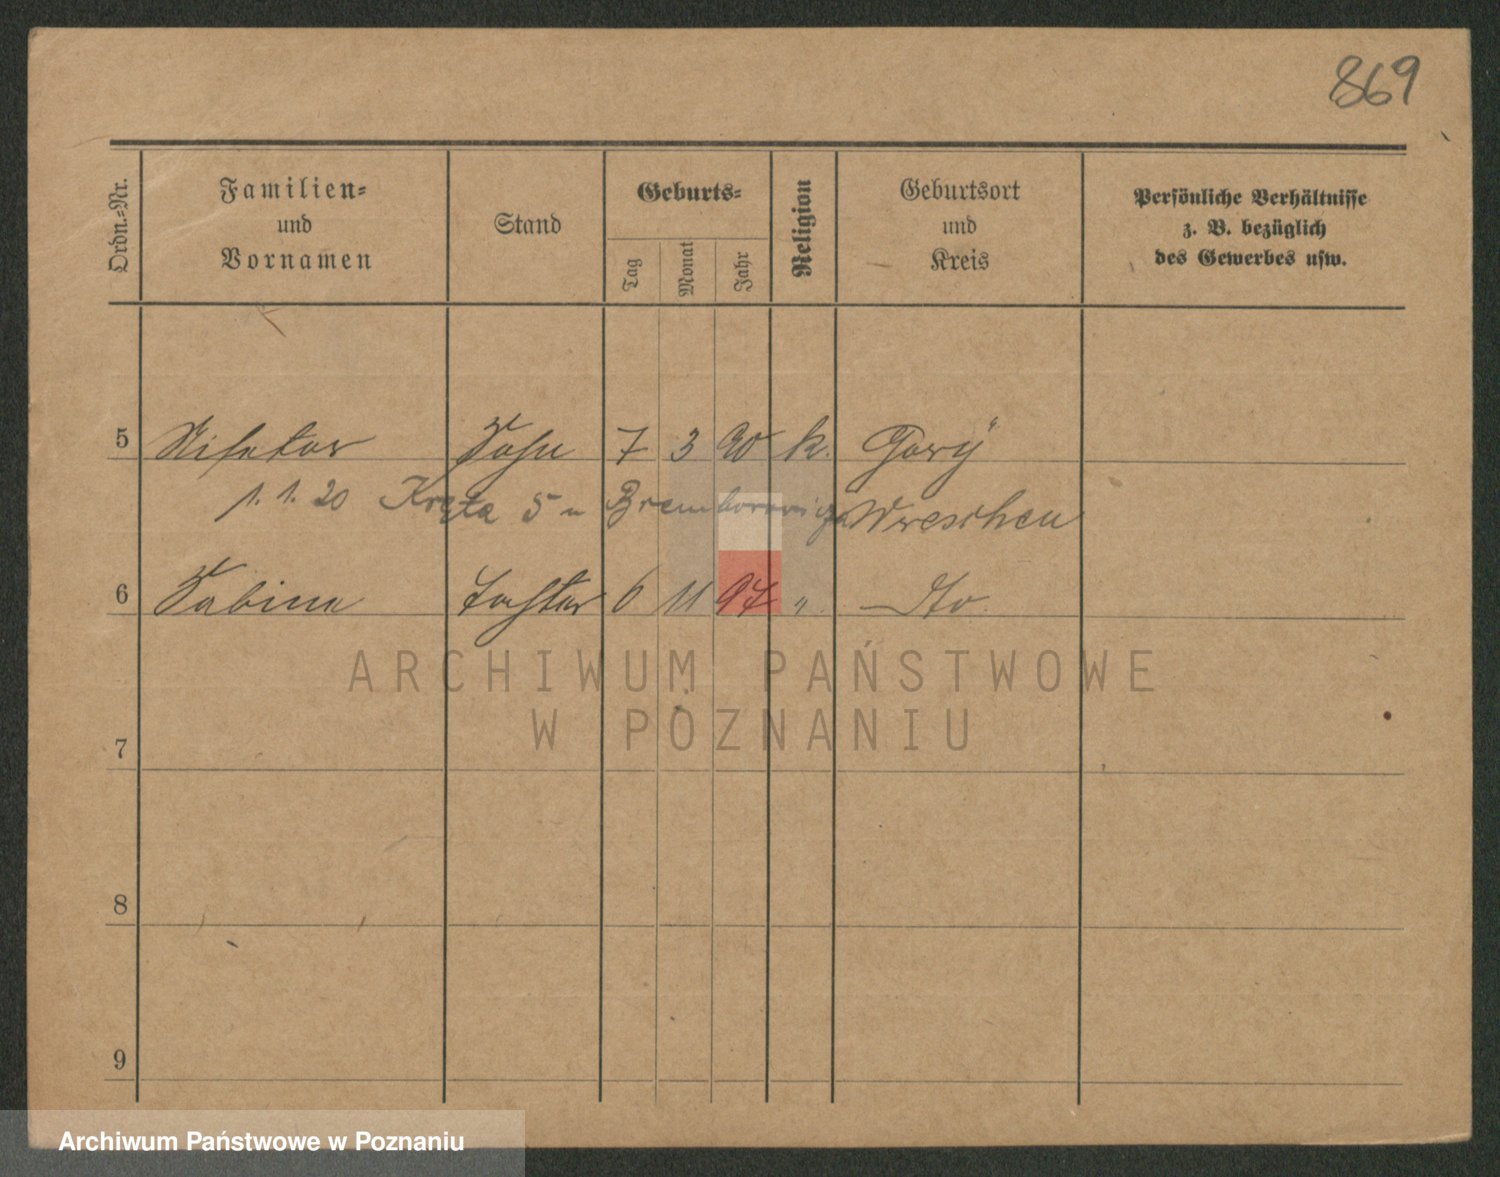 869
Ordn.-Nr.
Familien-
und
Vornamen
Stand
Geburts-
Tag
Monat
Jahr
Religion
Geburtsort
und
Kreis
Persönliche Verhältnisse
z. B. bezüglich
des Gewerbes usw.
5 Sohn 7 3 90 k. Gory
1. 1. 20 Kręta 5 u Wreschen
6 Sabina Tochter 6 11 97 " dto
ARCHIWUM PAŃSTWOWE
W POZNANIU
7
8
9
Archiwum Państwowe w Poznaniu